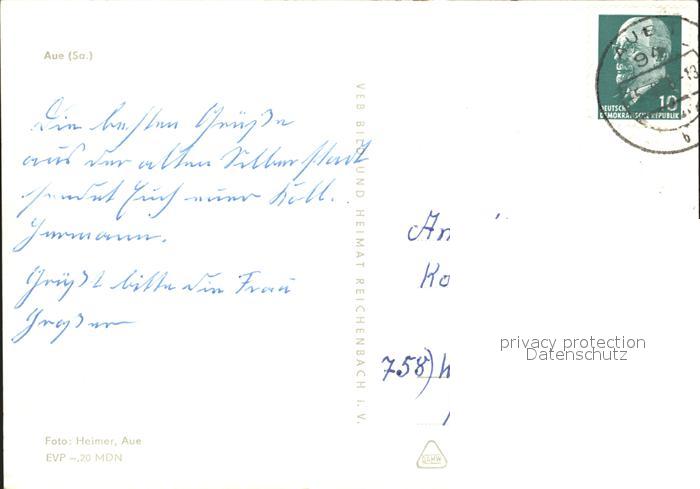 Aue (Sa.)
Die besten Grüße
aus der alten Silberstadt
sendet Euch euer Koll.
Hermann.
Grüßt bitte die Frau
VEB BILD UND HEIMAT REICHENBACH i. V.
Foto: Heimer, Aue
EVP –,20 MDN
AUE
94
10
DEUTSCHE
DEMOKRATISCHE REPUBLIK
b
An
Ko
758)
privacy protection
Datenschutz